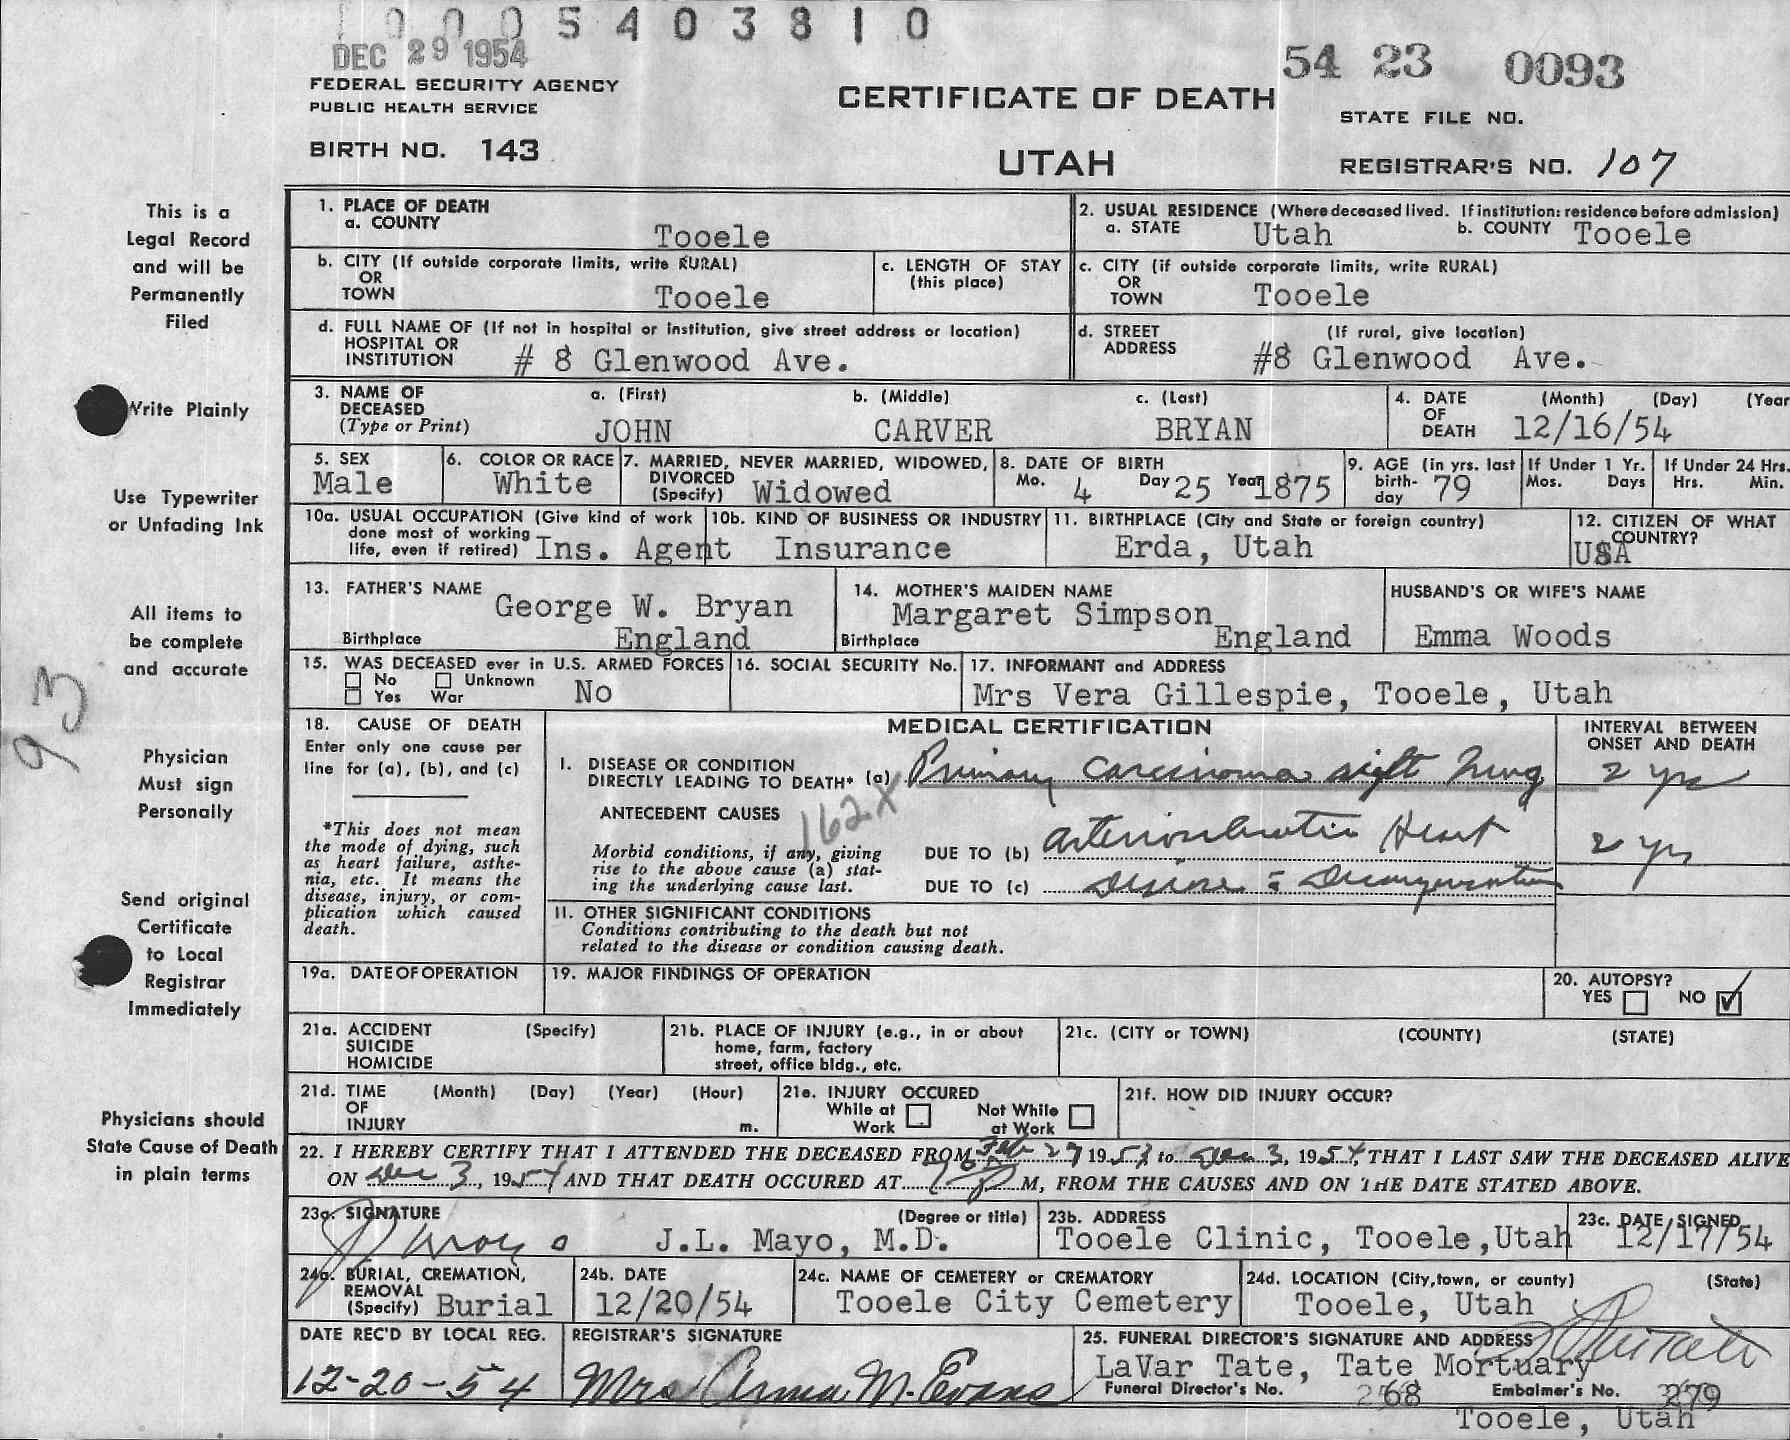 1 0 0 0 5 4 0 3 8 1 0
DEC 29 1954
54 23 0093
FEDERAL SECURITY AGENCY
PUBLIC HEALTH SERVICE
CERTIFICATE OF DEATH
STATE FILE NO.
BIRTH NO. 143
UTAH
REGISTRAR'S NO. 107
This is a
Legal Record
and will be
Permanently
Filed
Write Plainly
Use Typewriter
or Unfading Ink
All items to
be complete
and accurate
93
Physician
Must sign
Personally
Send original
Certificate
to Local
Registrar
Immediately
Physicians should
State Cause of Death
in plain terms
1. PLACE OF DEATH
a. COUNTY Tooele
2. USUAL RESIDENCE (Where deceased lived. If institution: residence before admission)
a. STATE Utah b. COUNTY Tooele
b. CITY (If outside corporate limits, write RURAL)
OR
TOWN Tooele
c. LENGTH OF STAY
(this place)
c. CITY (if outside corporate limits, write RURAL)
OR
TOWN Tooele
d. FULL NAME OF (If not in hospital or institution, give street address or location)
HOSPITAL OR
INSTITUTION # 8 Glenwood Ave.
d. STREET (If rural, give location)
ADDRESS #8 Glenwood Ave.
3. NAME OF a. (First) b. (Middle) c. (Last)
DECEASED
(Type or Print) JOHN CARVER BRYAN
4. DATE (Month) (Day) (Year
OF
DEATH 12/16/54
5. SEX
Male
6. COLOR OR RACE
White
7. MARRIED, NEVER MARRIED, WIDOWED,
DIVORCED
(Specify) Widowed
8. DATE OF BIRTH
Mo. 4 Day 25 Year 1875
9. AGE (in yrs. last
birth-
day 79
If Under 1 Yr.
Mos. Days
If Under 24 Hrs.
Hrs. Min.
10a. USUAL OCCUPATION (Give kind of work
done most of working
life, even if retired) Ins. Agent
10b. KIND OF BUSINESS OR INDUSTRY
Insurance
11. BIRTHPLACE (City and State or foreign country)
Erda, Utah
12. CITIZEN OF WHAT
COUNTRY?
USA
13. FATHER'S NAME
George W. Bryan
Birthplace England
14. MOTHER'S MAIDEN NAME
Margaret Simpson
Birthplace England
HUSBAND'S OR WIFE'S NAME
Emma Woods
15. WAS DECEASED ever in U.S. ARMED FORCES
No Unknown
Yes War No
16. SOCIAL SECURITY No.
17. INFORMANT and ADDRESS
Mrs Vera Gillespie, Tooele, Utah
18. CAUSE OF DEATH
Enter only one cause per
line for (a), (b), and (c)
*This does not mean
the mode of dying, such
as heart failure, asthe-
nia, etc. It means the
disease, injury, or com-
plication which caused
death.
MEDICAL CERTIFICATION
INTERVAL BETWEEN
ONSET AND DEATH
I. DISEASE OR CONDITION
DIRECTLY LEADING TO DEATH* (a) Primary Carcinoma right lung 2 yrs
162.X
ANTECEDENT CAUSES
Morbid conditions, if any, giving
rise to the above cause (a) stat-
ing the underlying cause last.
DUE TO (b) Arteriosclerotic Heart 2 yrs
DUE TO (c) Disease c̄ Decompensation
II. OTHER SIGNIFICANT CONDITIONS
Conditions contributing to the death but not
related to the disease or condition causing death.
19a. DATE OF OPERATION
19. MAJOR FINDINGS OF OPERATION
20. AUTOPSY?
YES NO
21a. ACCIDENT (Specify)
SUICIDE
HOMICIDE
21b. PLACE OF INJURY (e.g., in or about
home, farm, factory
street, office bldg., etc.
21c. (CITY or TOWN) (COUNTY) (STATE)
21d. TIME (Month) (Day) (Year) (Hour)
OF
INJURY m.
21e. INJURY OCCURED
While at Work Not While at Work
21f. HOW DID INJURY OCCUR?
22. I HEREBY CERTIFY THAT I ATTENDED THE DECEASED FROM Feb 27 1953, to Dec 3, 1954, THAT I LAST SAW THE DECEASED ALIVE
ON Dec 3, 1954 AND THAT DEATH OCCURED AT P M, FROM THE CAUSES AND ON THE DATE STATED ABOVE.
23a. SIGNATURE (Degree or title)
J L Mayo J.L. Mayo, M.D.
23b. ADDRESS
Tooele Clinic, Tooele, Utah
23c. DATE SIGNED
12/17/54
24a. BURIAL, CREMATION,
REMOVAL
(Specify) Burial
24b. DATE
12/20/54
24c. NAME OF CEMETERY or CREMATORY
Tooele City Cemetery
24d. LOCATION (City, town, or county) (State)
Tooele, Utah
DATE REC'D BY LOCAL REG.
12-20-54
REGISTRAR'S SIGNATURE
Mrs Anna M. Evans
25. FUNERAL DIRECTOR'S SIGNATURE AND ADDRESS
LaVar Tate, Tate Mortuary
Funeral Director's No. 268 Embalmer's No. 279
Tooele, Utah